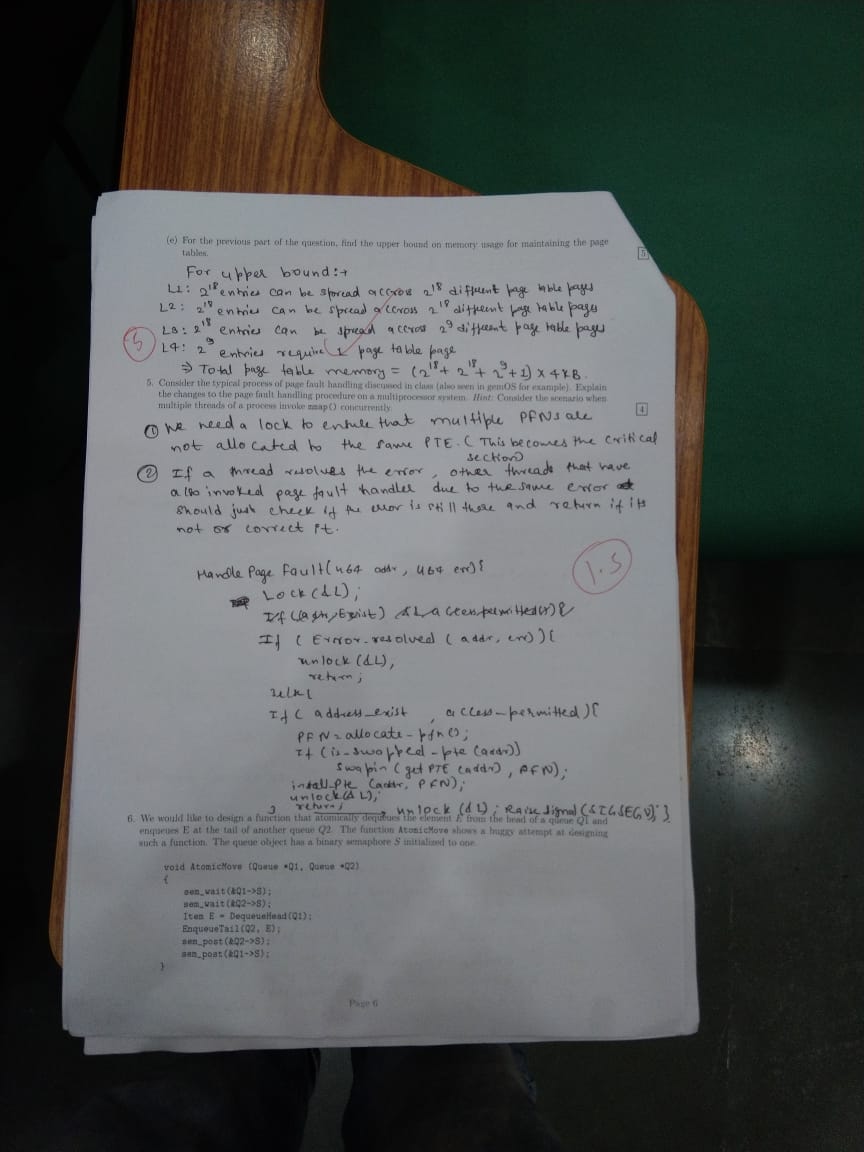 (e) For the previous part of the question, find the upper bound on memory usage for maintaining the page
tables.
5
For upper bound:→
L1: 2^18 entries can be spread accross 2^18 different page table pages
L2: 2^18 entries can be spread accross 2^18 different page table pages
L3: 2^18 entries can be spread accross 2^9 different page table pages
5
L4: 2^9 entries require 1 page table page
⇒ Total page table memory = (2^18 + 2^18 + 2^9 + 1) x 4KB.
5. Consider the typical process of page fault handling discussed in class (also seen in gemOS for example). Explain
the changes to the page fault handling procedure on a multiprocessor system. Hint: Consider the scenario when
multiple threads of a process invoke mmap() concurrently.
4
① We need a lock to ensure that multiple PFNs are
not allocated to the same PTE. (This becomes the critical
section)
② If a thread resolves the error, other threads that have
also invoked page fault handler due to the same error
should just check if the error is still there and return if its
not or correct it.
1.5
Handle Page Fault(u64 addr, u64 err){
Lock(&L);
If (Error-resolved (addr, err)){
unlock(&L);
return;
}else{
If ( address_exist , access-permitted ){
PFN = allocate-pfn();
If (is-swapped-pte (addr))
swapin (get PTE (addr), PFN);
install-pte (addr, PFN);
unlock(&L);
return;
} unlock (&L); Raise Signal (SIGSEGV); }
6. We would like to design a function that atomically dequeues the element E from the head of a queue Q1 and
enqueues E at the tail of another queue Q2. The function AtomicMove shows a buggy attempt at designing
such a function. The queue object has a binary semaphore S initialized to one.
void AtomicMove (Queue *Q1, Queue *Q2)
{
sem_wait(&Q1->S);
sem_wait(&Q2->S);
Item E = DequeueHead(Q1);
EnqueueTail(Q2, E);
sem_post(&Q2->S);
sem_post(&Q1->S);
}
Page 6